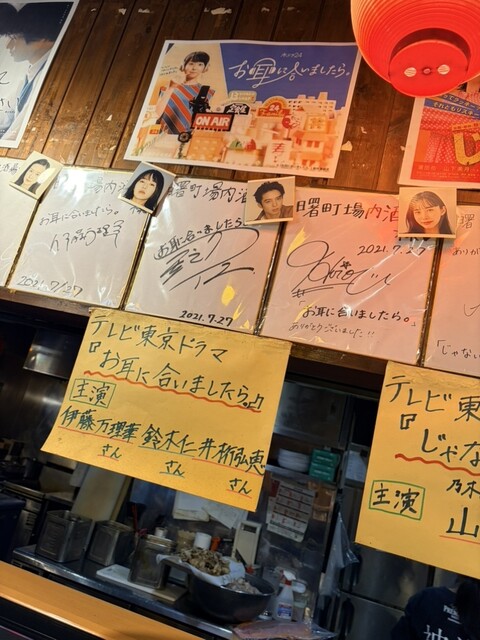 お耳に合いましたら。
ON AIR
24
酒場
曙町場内酒
お耳に合いましたら。
伊藤万理華
2021.7/27
曙町場内酒
お耳に合いましたら。
2021.7.27
曙町場内酒
2021.7.27
「お耳に合いましたら。」
ありがとうございました!!
「じゃない
テレビ東京ドラマ
『お耳に合いましたら。』
主演
伊藤万理華 鈴木仁 井桁弘恵
さん さん さん
テレビ東
『じゃな
乃木
主演
山